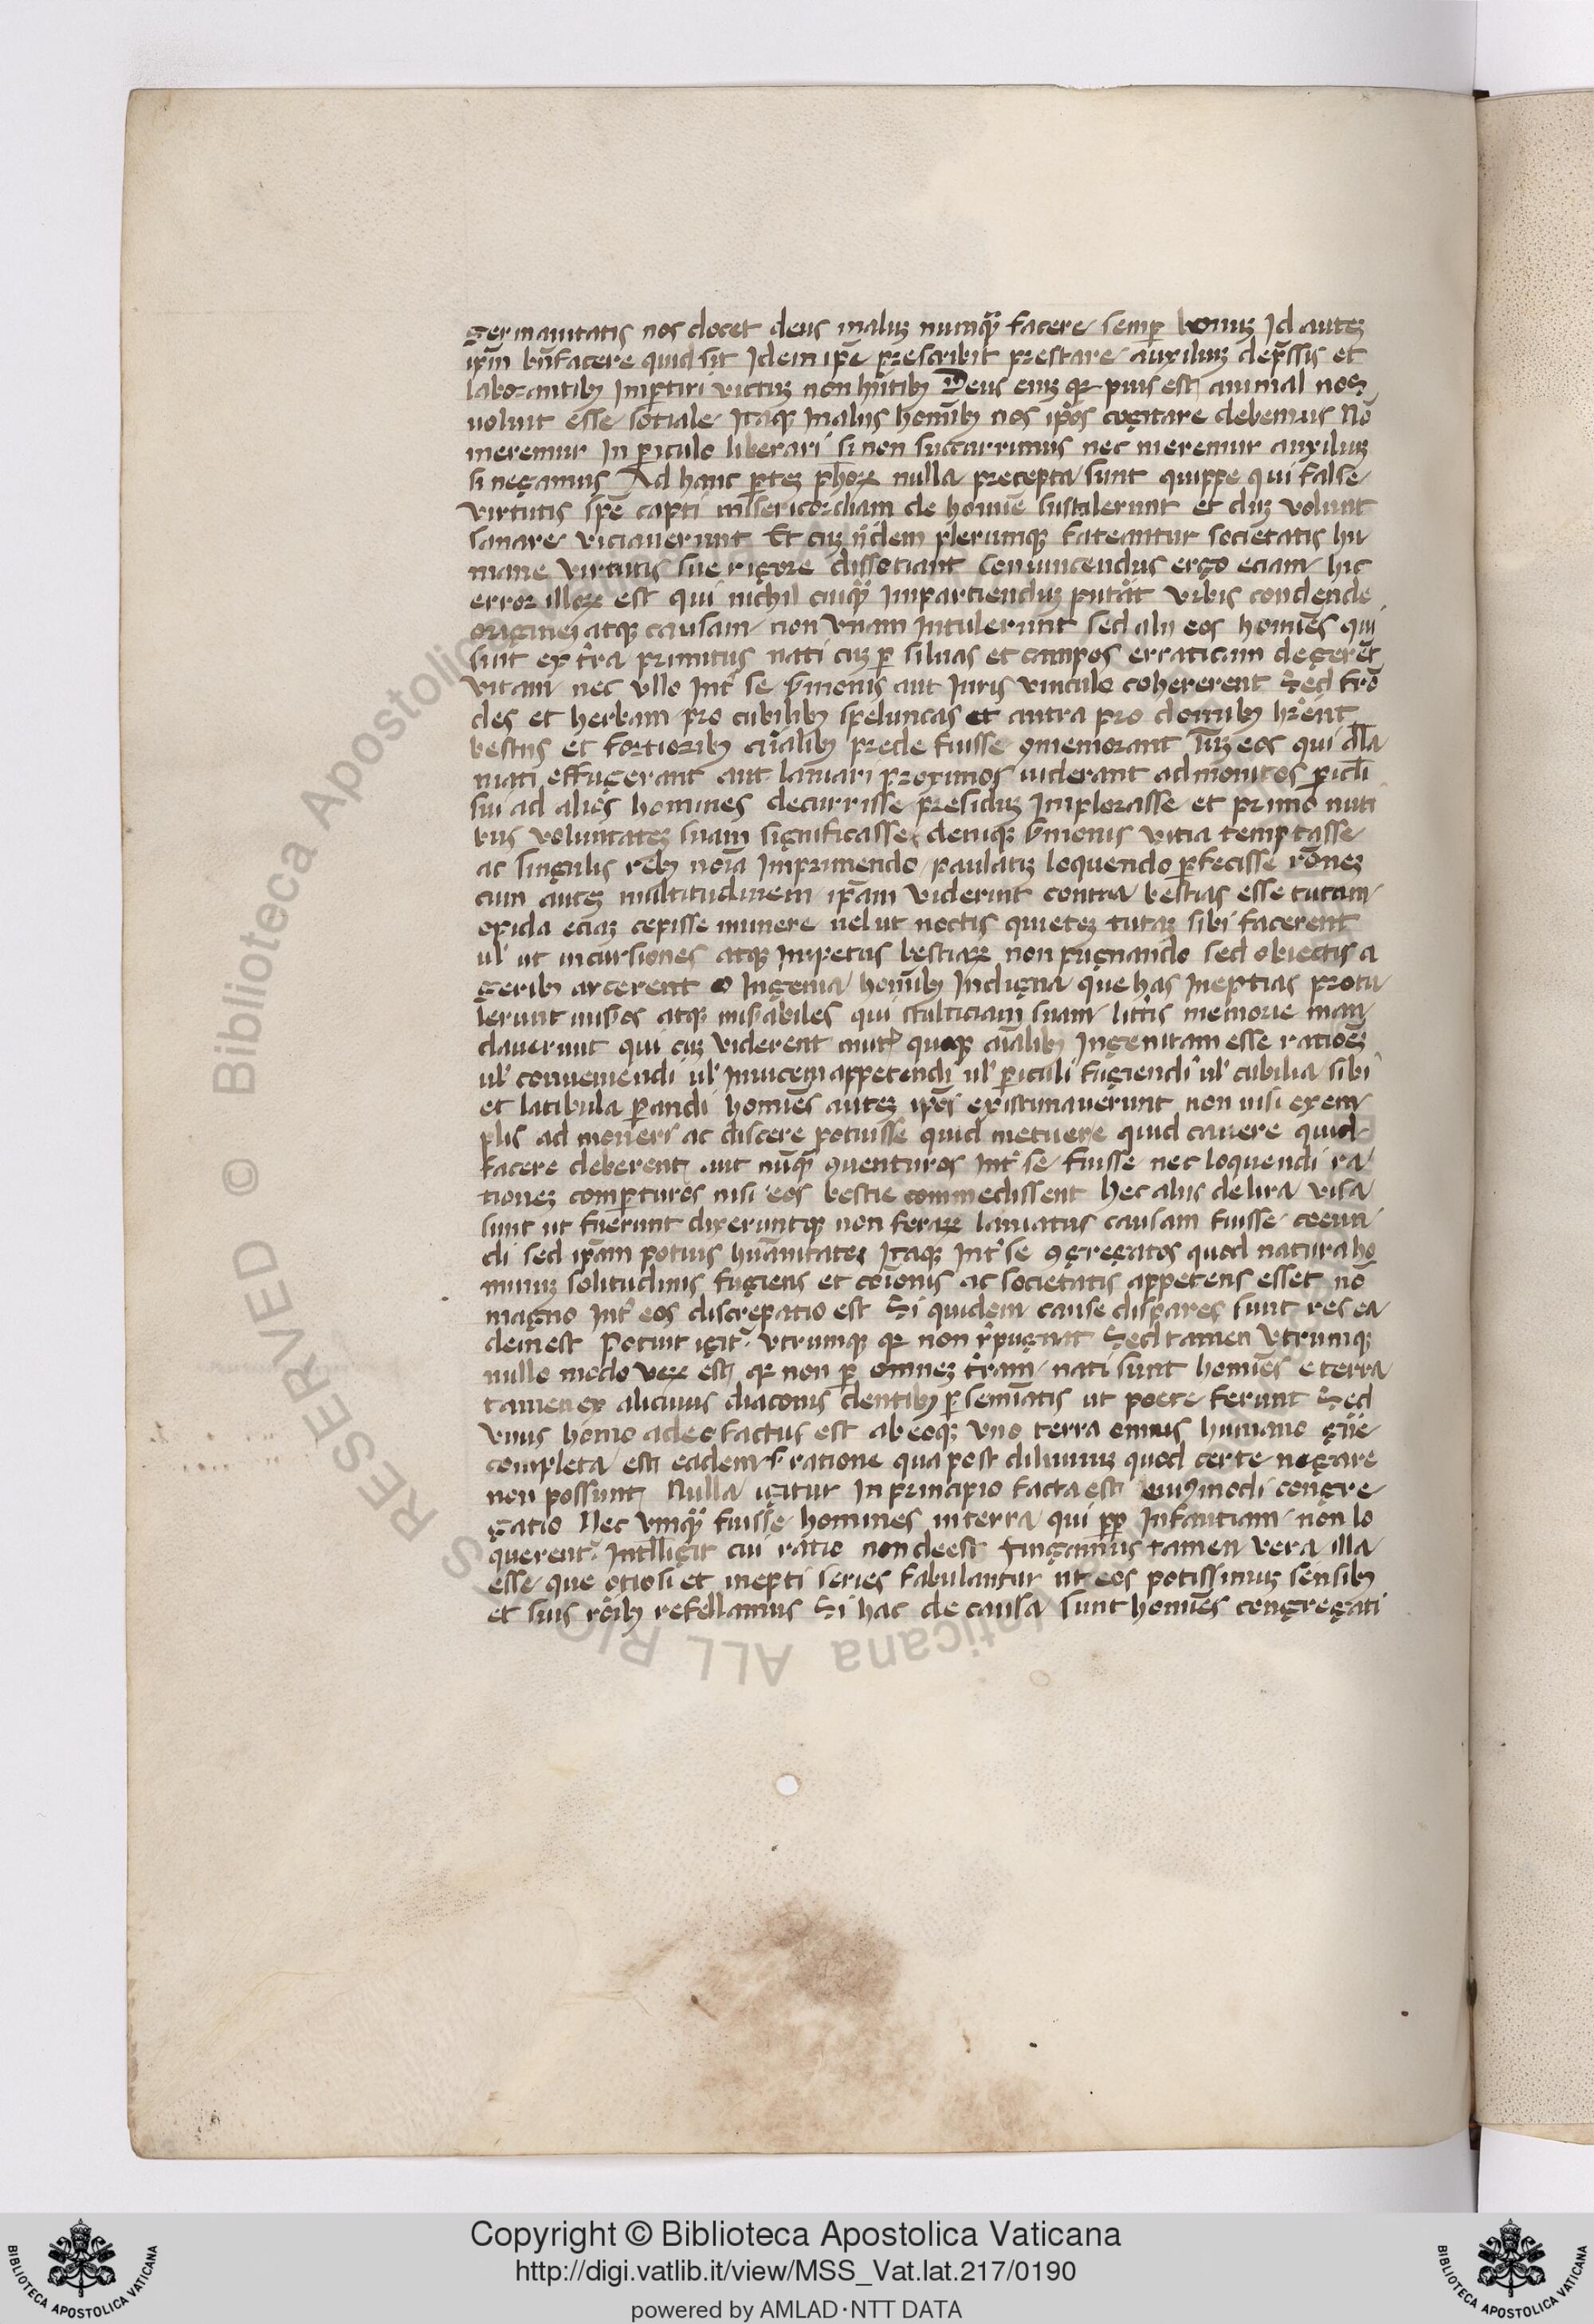 germanitatis nos docet deus maluꝫ nunqꝫ facere semꝑ bonuꝫ Id auteꝫ
ip̄m bn̄facere quid sit Idem ip̄e prescribit prestare auxiliuꝫ dep̄ssis et
laborantibꝫ Imꝑtiri victuꝫ non hn̄tibꝫ Deus eniꝫ qꝛ pius est animal nos
voluit esse sotiale Itaqꝫ In aliis homībꝫ nos ip̄os cogitare debemus Nō
meremur In ꝑiculo liberari si non succurrimus nec meremur auxiliuꝫ
si negamus Ad hanc ꝑteꝫ ph̄oꝝ nulla precepta sunt quippe qui false
virtutis spē capti misericordiam de homīe sustulerunt et duꝫ volunt
sanare viciauerunt Et cuꝫ iidem plerumqꝫ fateantur societatis hu
mane virtutis sue rigore dissotiant Conuincendus ergo eciam hic
error illoꝝ est qui nichil cuiqꝫ Impartienduꝫ putāt Vrbis condende
originei atqꝫ causam non vnam Intulerunt sed alii eos homīes qui
sint ex t̄ra primitus nati cuꝫ ꝑ siluas et campos erraticam degerēt
vitam nec vllo Int̄ se s̄monis aut Iuris vinculo cohererent Sed frō
des et herbam pro cubilibꝫ speluncas et antra pro domibꝫ hr̄ent
bestiis et fortioribꝫ aīalibꝫ prede fuisse ꝯmemorant Tuꝫ eos qui aūt la
niati effugerant aut laniari proximos viderant admonitos ꝑicl̄i
sui ad alios homines decurrisse presiduꝫ Implorasse et primo nuti
bus voluntateꝫ suam significasse deniqꝫ s̄monis vitia temptasse
ac singulis rebꝫ noīa Imprimendo paulatiꝫ loquendo ꝑfecisse rōneꝫ
cum auteꝫ multitudinem ip̄am viderint contra bestias esse tutam
opida eciaꝫ cepisse munere vel ut noctis quieteꝫ tutaꝫ sibi facerent
ul̄ ut incursiones atqꝫ Impetus bestiaꝝ non pugnando sed obiectis a
geribꝫ arcerent O Ingenia homībꝫ Indigna que has Ineptias protu
lerunt mis̄os atqꝫ mis̄abiles qui stulticiam suam litt̄is memorie man
dauerunt qui cuꝫ viderent mutis quoqꝫ aīalibꝫ Ingenitam esse ratioēꝫ
ul̄ conueniendi ul̄ Inuicem appetendi ul̄ ꝑiculi fugiendi ul̄ cubilia sibi
et latibula ꝑandi homīes auteꝫ ip̄os existimauerunt non nisi exem
plis ad moneri ac discere potuisse quid metuere quid cauere quid
facere deberent aut nūqꝫ ꝯuenturos Int̄ se fuisse nec loquendi ra
tioneꝫ comꝑturos nisi eos bestie commedissent Hec aliis delira visa
sunt ut fuerunt dixeruntqꝫ non feraꝝ laniatus causam fuisse coeun
di sed ip̄am potius hūanitateꝫ Itaqꝫ Int̄ se ꝯgregatos quod natura ho
minuꝫ solitudinis fugiens et cōionis ac societatis appetens esset nō
magno Int̄ eos discrepatio est Si quidem cause dispares sunt res ea
dem est Potuit igit̄ utrumqꝫ qꝛ non r̄pugnat Sed tamen vtrumqꝫ
nullo modo veꝝ est qꝛ non ꝑ omneꝫ t̄ram nati sunt homīes e terra
tamen ex alicuius diaconis dentibꝫ ꝑ semīatis ut poete ferunt Sed
vnus homo a deo factus est ab eoqꝫ vno terra omnis humano gn̄e
completa est eadem s̄ ratione qua post diluuiuꝫ quod certe negare
non possunt Nulla igitur In principio facta est eiusmodi congre
gatio Nec vnqꝫ fuisse homines in terra qui pp̄ Infantiam non lo
querent̄ Intelligit cui ratio non deest fingamus tamen vera illa
esse que otiosi et inepti series fabulantur ut eos potissimuꝫ sensibꝫ
et suis rōibꝫ refellamus Si hac de causa sunt homīes congregati
Copyright © Biblioteca Apostolica Vaticana
http://digi.vatlib.it/view/MSS_Vat.lat.217/0190
powered by AMLAD·NTT DATA